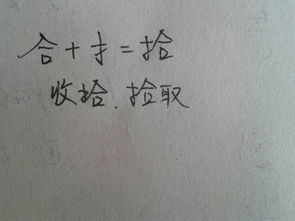 合+扌=拾
收拾.拾取